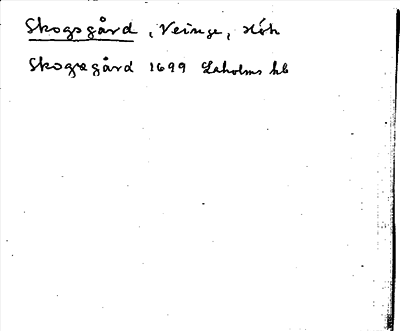 Skogsgård, Veinge, Höh
Skogsgård 1699 Laholms kb